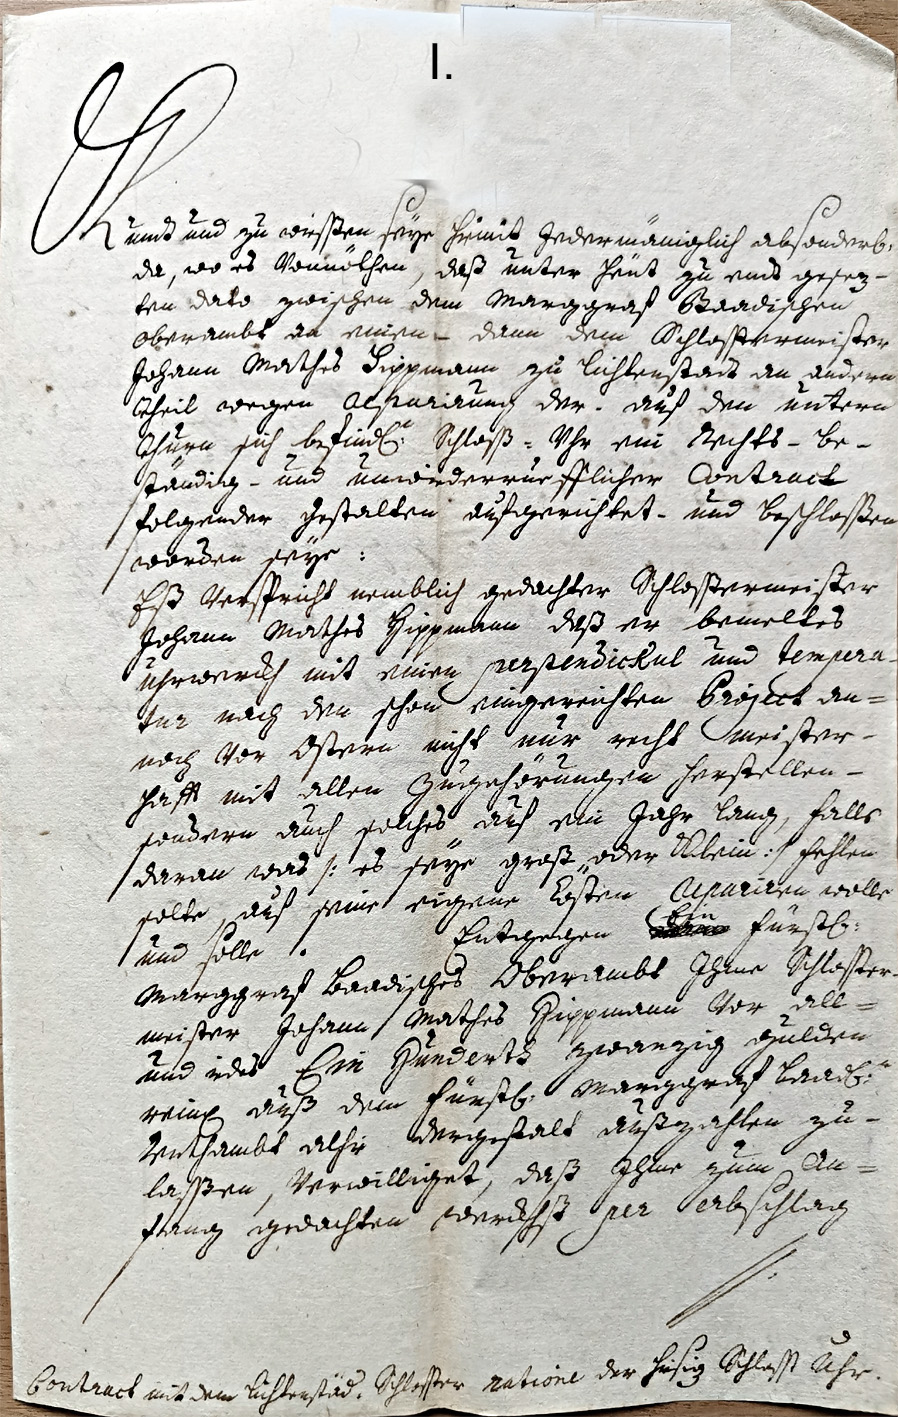 I.
Kundt und zu wissen seye hiemit Jedermäniglich absonderl:
da, wo es Vonnöthen, daß unter heut zu ends gesez-
ten dato zwischen dem Marggraf Baadischen
oberambt an einem- dann dem Schlossermeister
Johann Mathes Hippmann zu Lichtenstadt an andern
Theil wegen Reparirung der- auf den untern
Thurn sich befindl: Schloß-Uhr ein Rechts-be-
ständig- und unwiederruefflicher Contract
folgender gestalten aufgerichtet- und beschlossen
worden seye:
Eß Verspricht nemblich gedachter Schlossermeister
Johann Mathes Hippmann daß er bemeltes
uhrwerckh mit einen perpendickul und tempera-
tur nach den schon eingereichten Project an-
noch Vor Ostern nicht nur recht meister-
hafft mit allen Zugehörungen herstellen-
sondern auch solches auf ein Jahr lang, falls
daran was /: es seye groß oder Klein :/ fehlen
solte, auf seine eigene Kosten Repariren wolle
und solle. Entgegen Ein Fürstl:
Marggraf Baadisches Oberambt Ihme Schlosser-
meister Johann Mathes Hippmann Vor all-
und jedes Ein Hundert zwanzig gulden
reinl auß dem Fürstl: Marggraf Baad:
Renthambt alhir dergestalt außzahlen zu-
lassen, Verwilliget, daß Ihme zum An-
fang gedachten werckhs per abschlag
Contract mit dem Lichtenstäd. Schlosser ratione der hiesig Schloss Uhr.